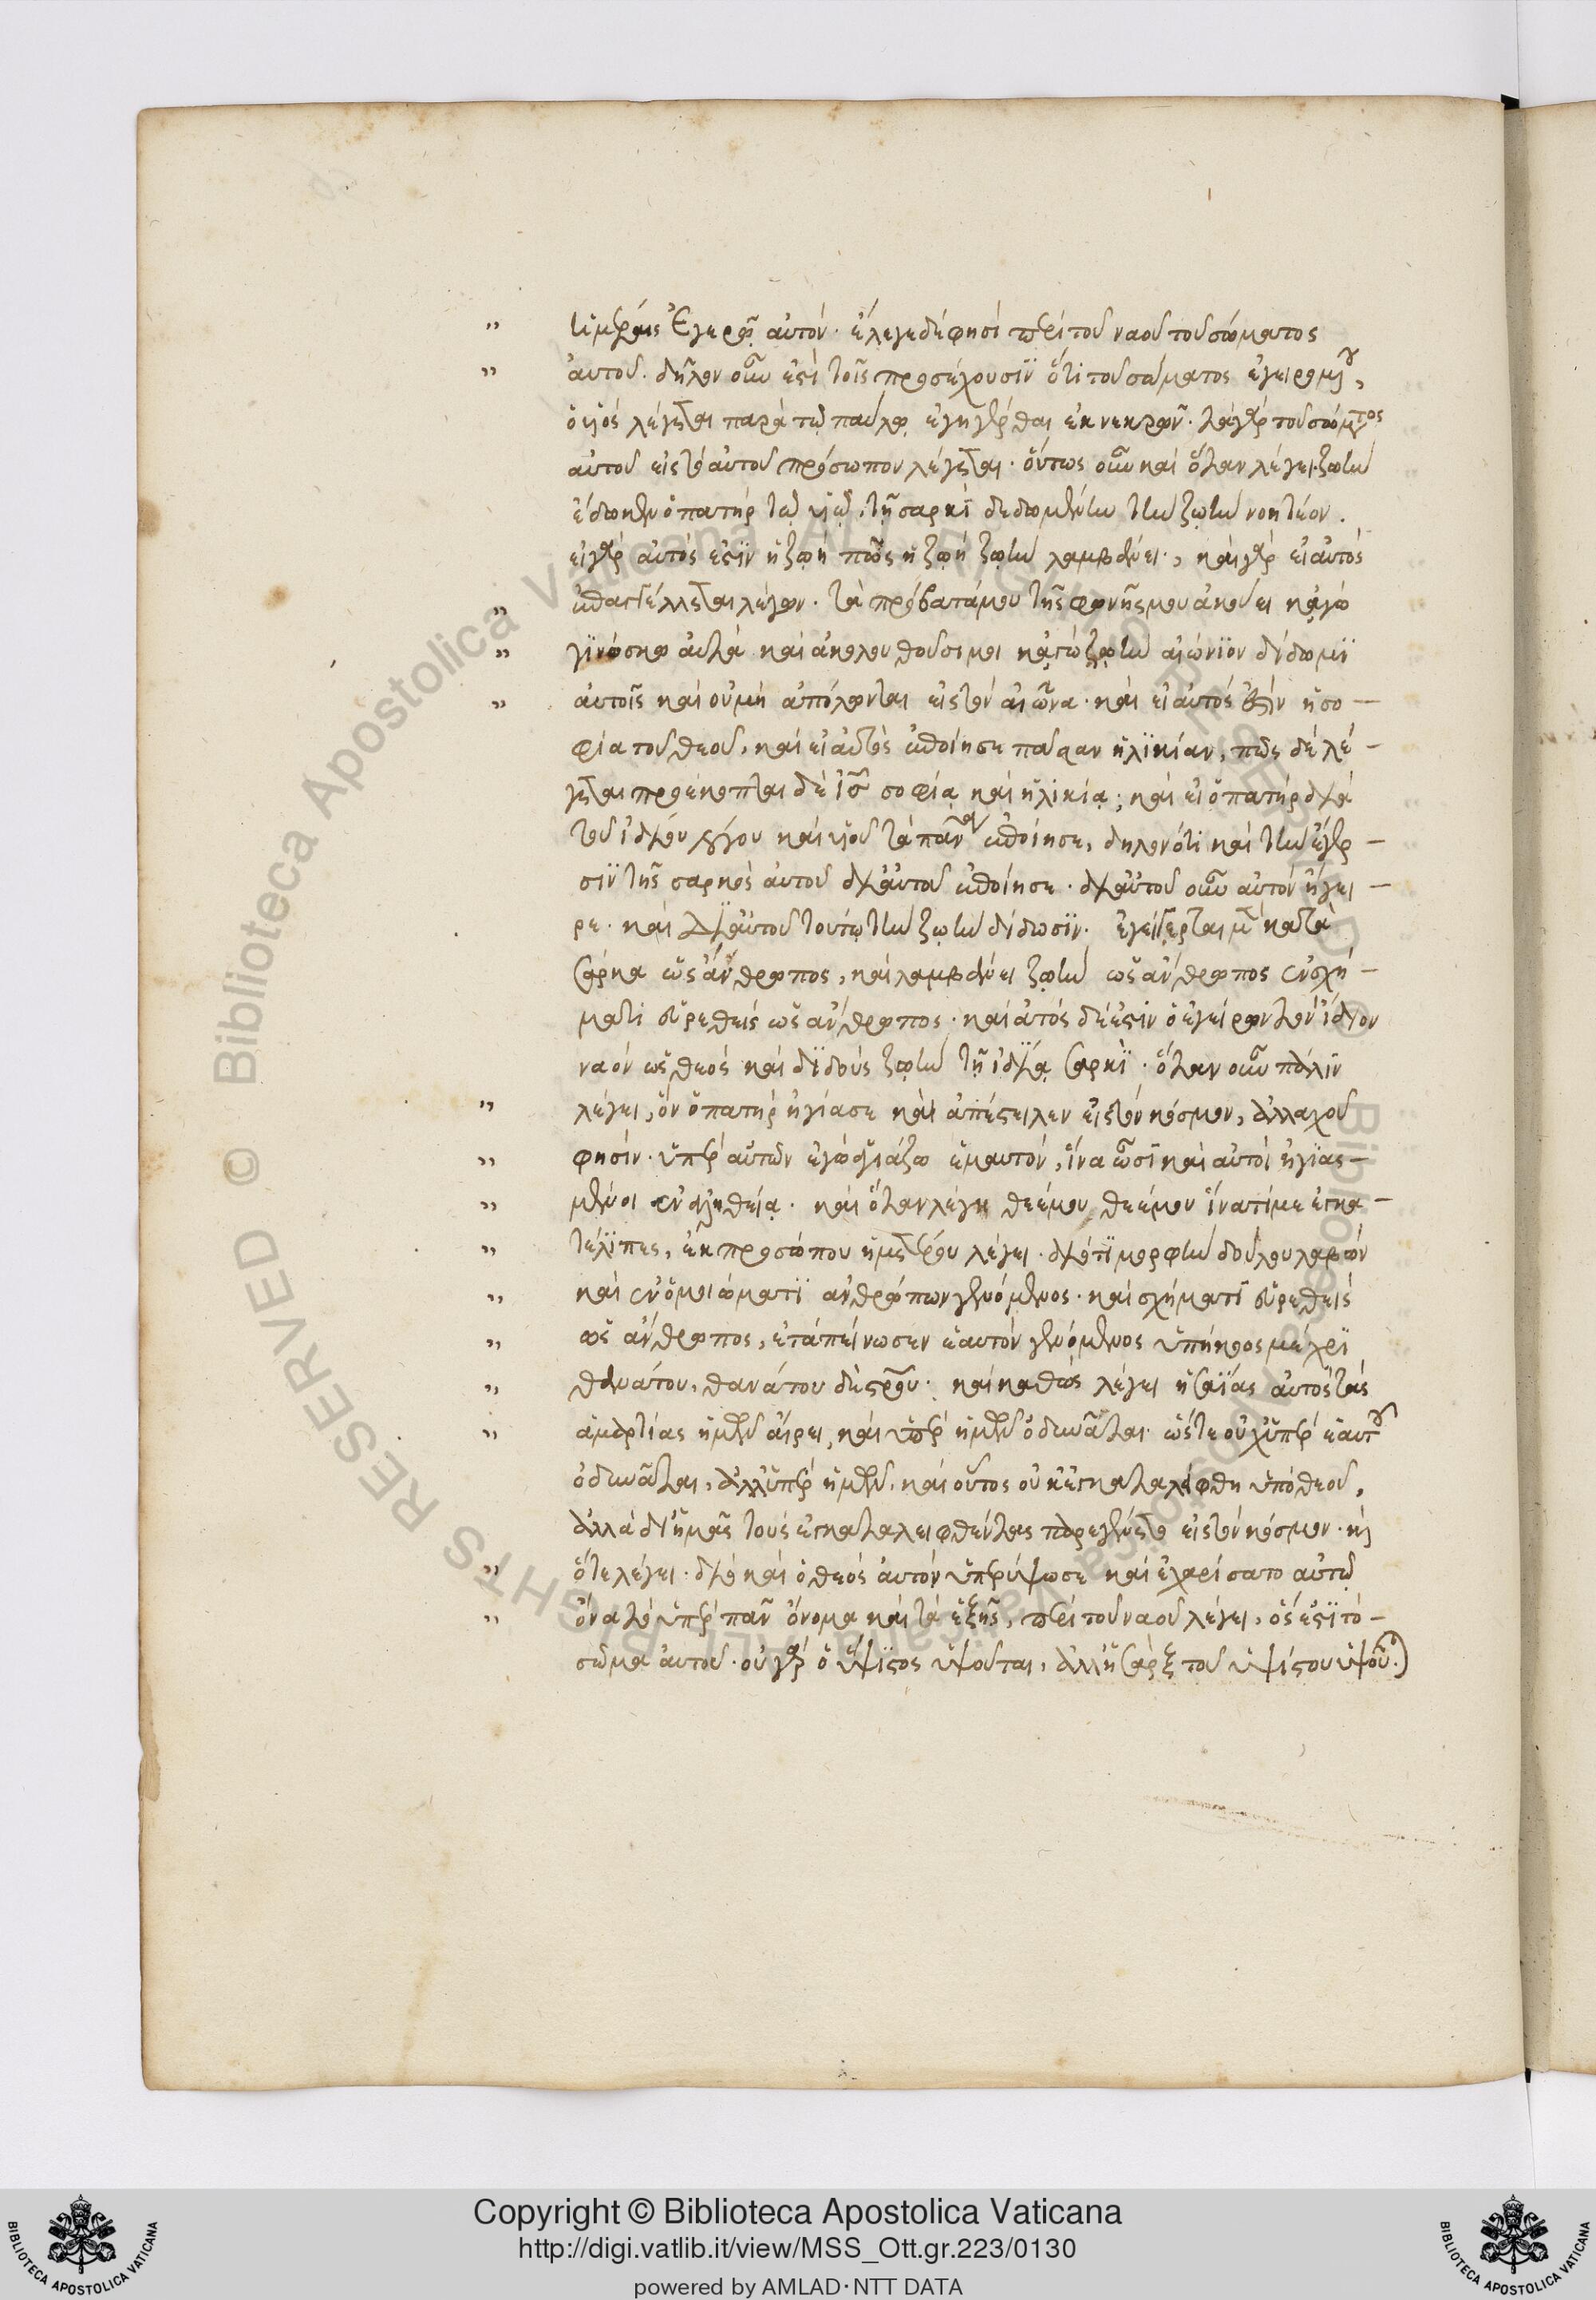 τὶ ἡμέραις ἐγερῶ αὐτόν· ἔλεγε δέ φησι περὶ τοῦ ναοῦ τοῦ σώματος
αὐτοῦ. δῆλον οὖν ἐστὶ τοῖς προσέχουσιν ὅτι τοῦ σώματος ἐγειρομένου,
ὁ υἱός λέγεται παρὰ τῷ παύλῳ ἐγηγέρθαι ἐκ νεκρῶν· τὰ γὰρ τοῦ σώματος
αὐτοῦ εἰς τὸ αὐτοῦ πρόσωπον λέγεται· οὕτως οὖν καὶ ὅταν λέγει ζωὴν
ἔδωκεν ὁ πατήρ τῷ υἱῷ, τῇ σαρκὶ δεδομένην τὴν ζωὴν νοητέον.
εἰ γὰρ αὐτός ἐστιν ἡ ζωή πῶς ἡ ζωή ζωὴν λαμβάνει, καὶ γὰρ εἰ αὐτός
ἐπαγγέλλεται λέγων· τὰ πρόβατά μου τῆς φωνῆς μου ἀκούει κἀγὼ
γινώσκω αὐτὰ καὶ ἀκολουθοῦσι μοι κἀγὼ ζωὴν αἰώνιον δίδωμι
αὐτοῖς καὶ οὐ μὴ ἀπόλωνται εἰς τὸν αἰῶνα· καὶ εἰ αὐτός ἐστιν ἡ σο–
φία τοῦ θεοῦ, καὶ εἰ αὐτὸς ἐποίησε πᾶσαν ἡλικίαν, πῶς δὲ λέ–
γεται προέκοπται δὲ ἰς̅ σοφίᾳ καὶ ἡλικίᾳ; καὶ εἰ ὁ πατὴρ διὰ
τοῦ ἰδίου λόγου καὶ υἱοῦ τὰ πάντα ἐποίησε, δηλονότι καὶ τὴν ἔγερ–
σιν τῆς σαρκὸς αὐτοῦ δι' αὐτοῦ ἐποίησε· δι' αὐτοῦ οὖν αὐτὸν ἤγει–
ρε· καὶ δι' αὐτοῦ τούτῳ τὴν ζωὴν δίδωσιν· ἐγείγερται μὲν κατὰ
σάρκα ὡς ἄνθρωπος, καὶ λαμβάνει ζωὴν ὡς ἄνθρωπος ἐν σχή–
ματι εὑρεθείς ὡς ἄνθρωπος· καὶ αὐτός δέ ἐστιν ὁ ἐγείρων τὸν ἴδιον
ναόν ὡς θεός καὶ διδούς ζωὴν τῇ ἰδίᾳ σαρκὶ· ὅταν οὖν πάλιν
λέγει, ὅν ὁ πατήρ ἡγίασε καὶ ἀπέστειλεν εἰς τὸν κόσμον, ἀλλαχοῦ
φησίν· ὑπὲρ αὐτῶν ἐγὼ ἁγιάζω ἐμαυτόν, ἵνα ὦσι καὶ αὐτοὶ ἡγιας–
μένοι ἐν ἀληθείᾳ· καὶ ὅταν λέγῃ θεέ μου θεέ μου ἵνα τί με ἐγκα–
τέλιπες, ἐκ προσώπου ἡμετέρου λέγει· διότι μορφὴν δούλου λαβών
καὶ ἐν ὁμοιώματι ἀνθρώπων γενόμενος· καὶ σχήματι εὑρεθείς
ὡς ἄνθρωπος, ἐταπείνωσεν ἑαυτόν γενόμενος ὑπήκοος μέχρι
θανάτου, θανάτου δὲ σταυροῦ· καὶ καθὼς λέγει ἡσαΐας αὐτὸς τὰς
ἁμαρτίας ἡμῶν αἴρει, καὶ ὑπὲρ ἡμῶν ὀδυνᾶται· ὥστε οὐχ ὑπὲρ ἑαυτοῦ
ὀδυνᾶται, ἀλλ' ὑπὲρ ἡμῶν, καὶ οὗτος οὐκ ἐγκαταλείφθη ὑπὸ θεοῦ,
ἀλλὰ δι' ἡμᾶς τοὺς ἐγκαταλειφθέντας παρεγένετο εἰς τὸν κόσμον· κὶ
ὅτε λέγει· διὸ καὶ ὁ θεός αὐτὸν ὑπερύψωσε καὶ ἐχαρίσατο αὐτῷ
ὄνα τὸ ὑπὲρ πᾶν ὄνομα καὶ τὰ ἑξῆς, περὶ τοῦ ναοῦ λέγει, ὅς ἐστὶ τὸ–
σῶμα αὐτοῦ· οὐ γὰρ ὁ ὕψιστος ὑψοῦται, ἀλλ' ἡ σὰρξ τοῦ ὑψίστου ὑψοῦ·)
Copyright © Biblioteca Apostolica Vaticana
http://digi.vatlib.it/view/MSS_Ott.gr.223/0130
powered by AMLAD·NTT DATA